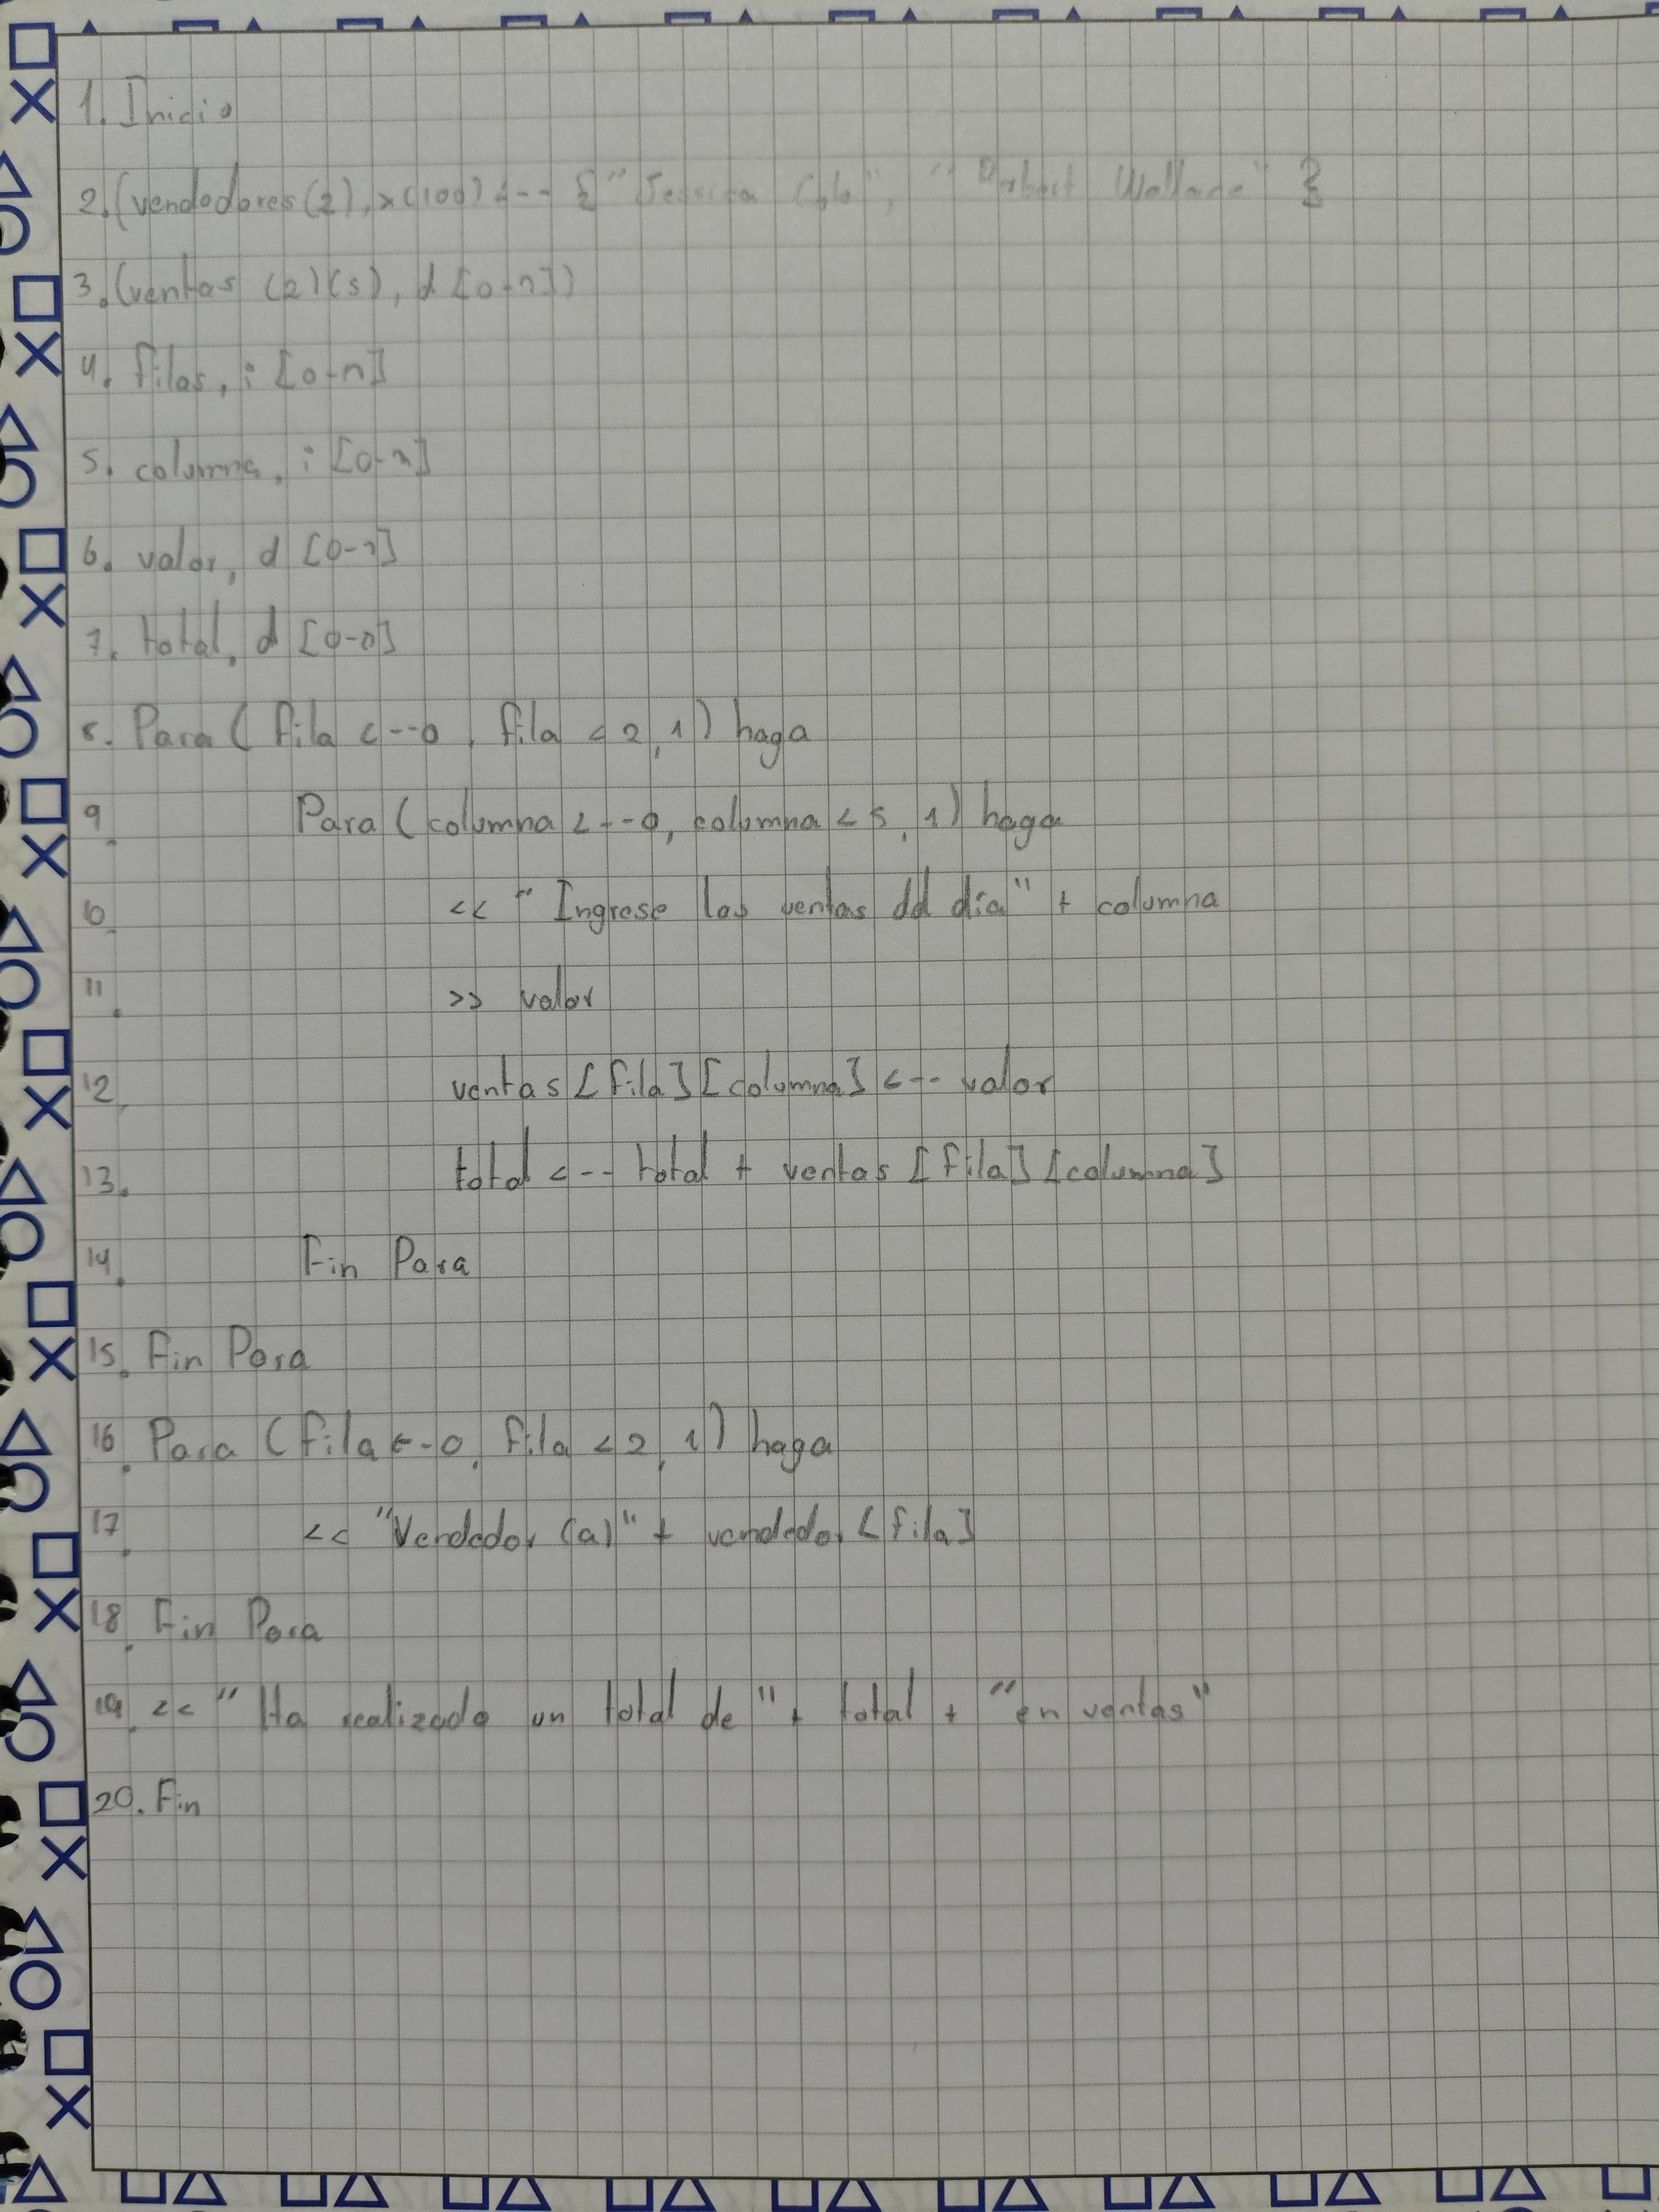 1. Inicio
2. (vendedores(2), x(100) <-- { "Jessica ", " Wallace" }
3. (ventas (2)(5), d [0-n])
4. filas, i [0-n]
5. columna, i [0-n]
6. valor, d [0-n]
7. total, d [0-n]
8. Para ( fila <--0, fila < 2, 1) haga
9. Para ( columna <--0, columna < 5, 1) haga
10. << "Ingrese las ventas del día" + columna
11. >> valor
12. ventas [fila] [columna] <-- valor
13. total <-- total + ventas [fila] [columna]
14. Fin Para
15. Fin Para
16. Para (fila <--0, fila < 2, 1) haga
17. << "Vendedor (a)" + vendedor [fila]
18. Fin Para
19. << "Ha realizado un total de" + total + "en ventas"
20. Fin